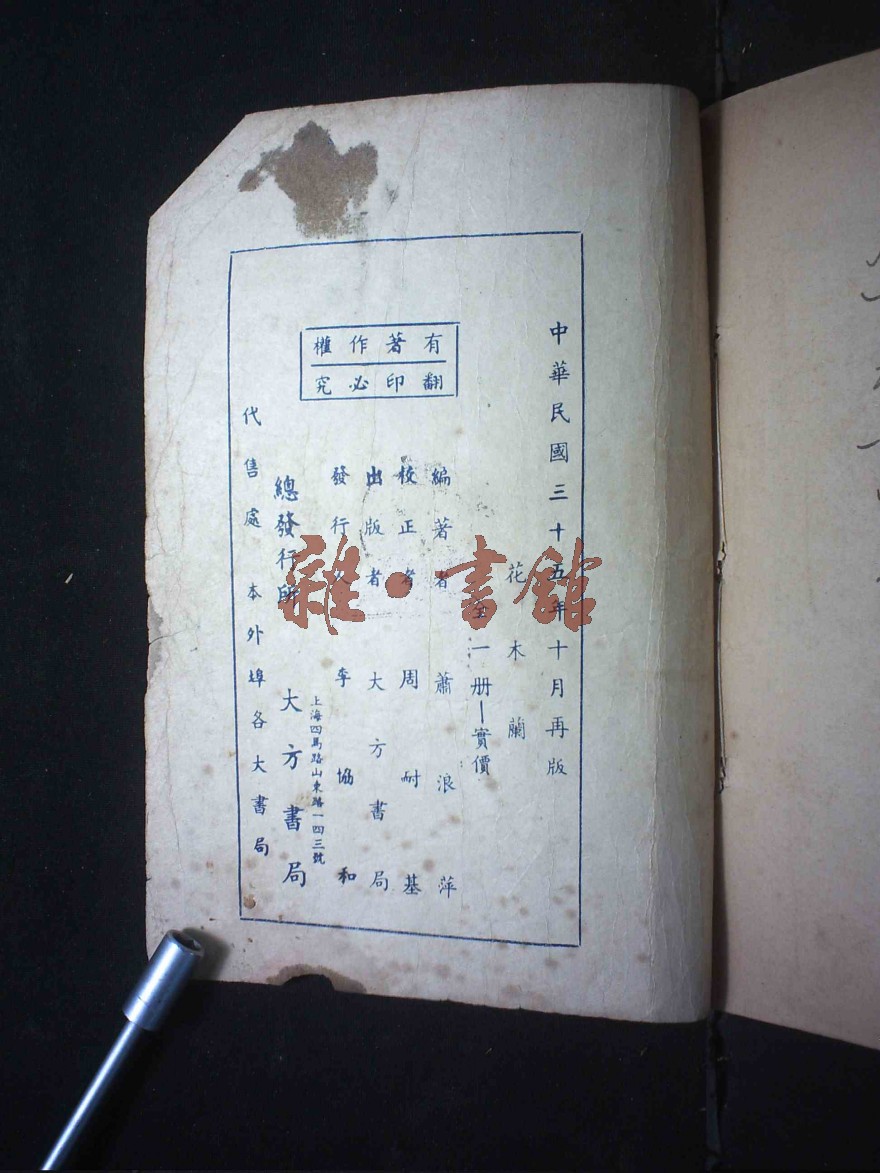 中華民國三十五年十月再版
花木蘭
全一册—實價
編著者 蕭浪萍
校正者 周耐基
出版者 大方書局
發行人 李協和
上海四馬路山東路一四三號
總發行所 大方書局
代售處 本外埠各大書局
有著作權
翻印必究
雜·書館